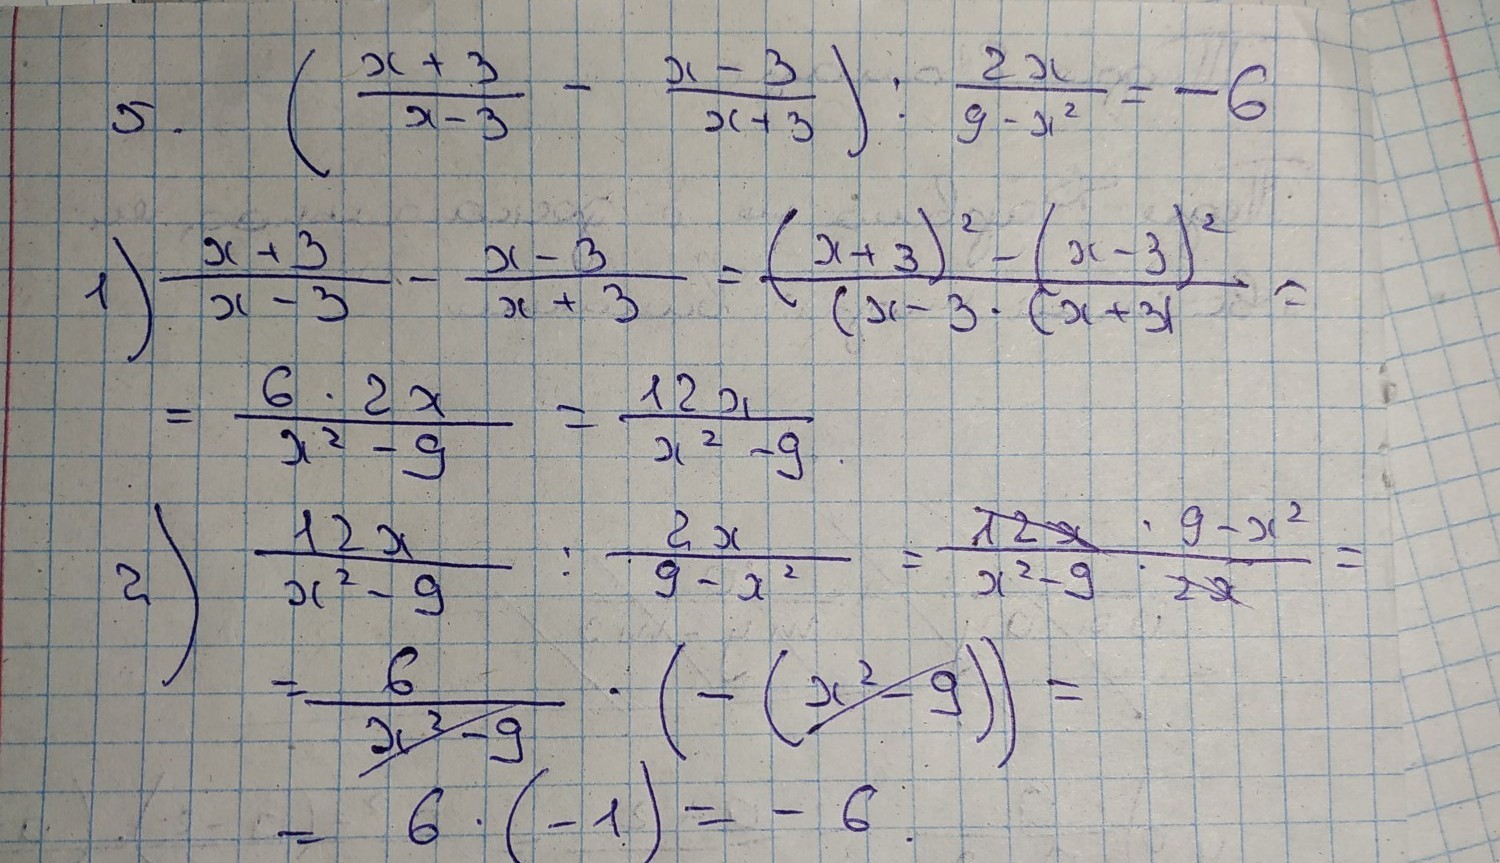 5. ( (x+3)/(x-3) - (x-3)/(x+3) ) : 2x/(9-x²) = -6
1) (x+3)/(x-3) - (x-3)/(x+3) = ((x+3)² - (x-3)²)/((x-3·(x+3) =
= (6·2x)/(x²-9) = 12x/(x²-9).
2) 12x/(x²-9) : 2x/(9-x²) = (12x · 9-x²)/(x²-9 · 2x) =
= 6/(x²-9) · (-(x²-9)) =
= 6·(-1) = -6.